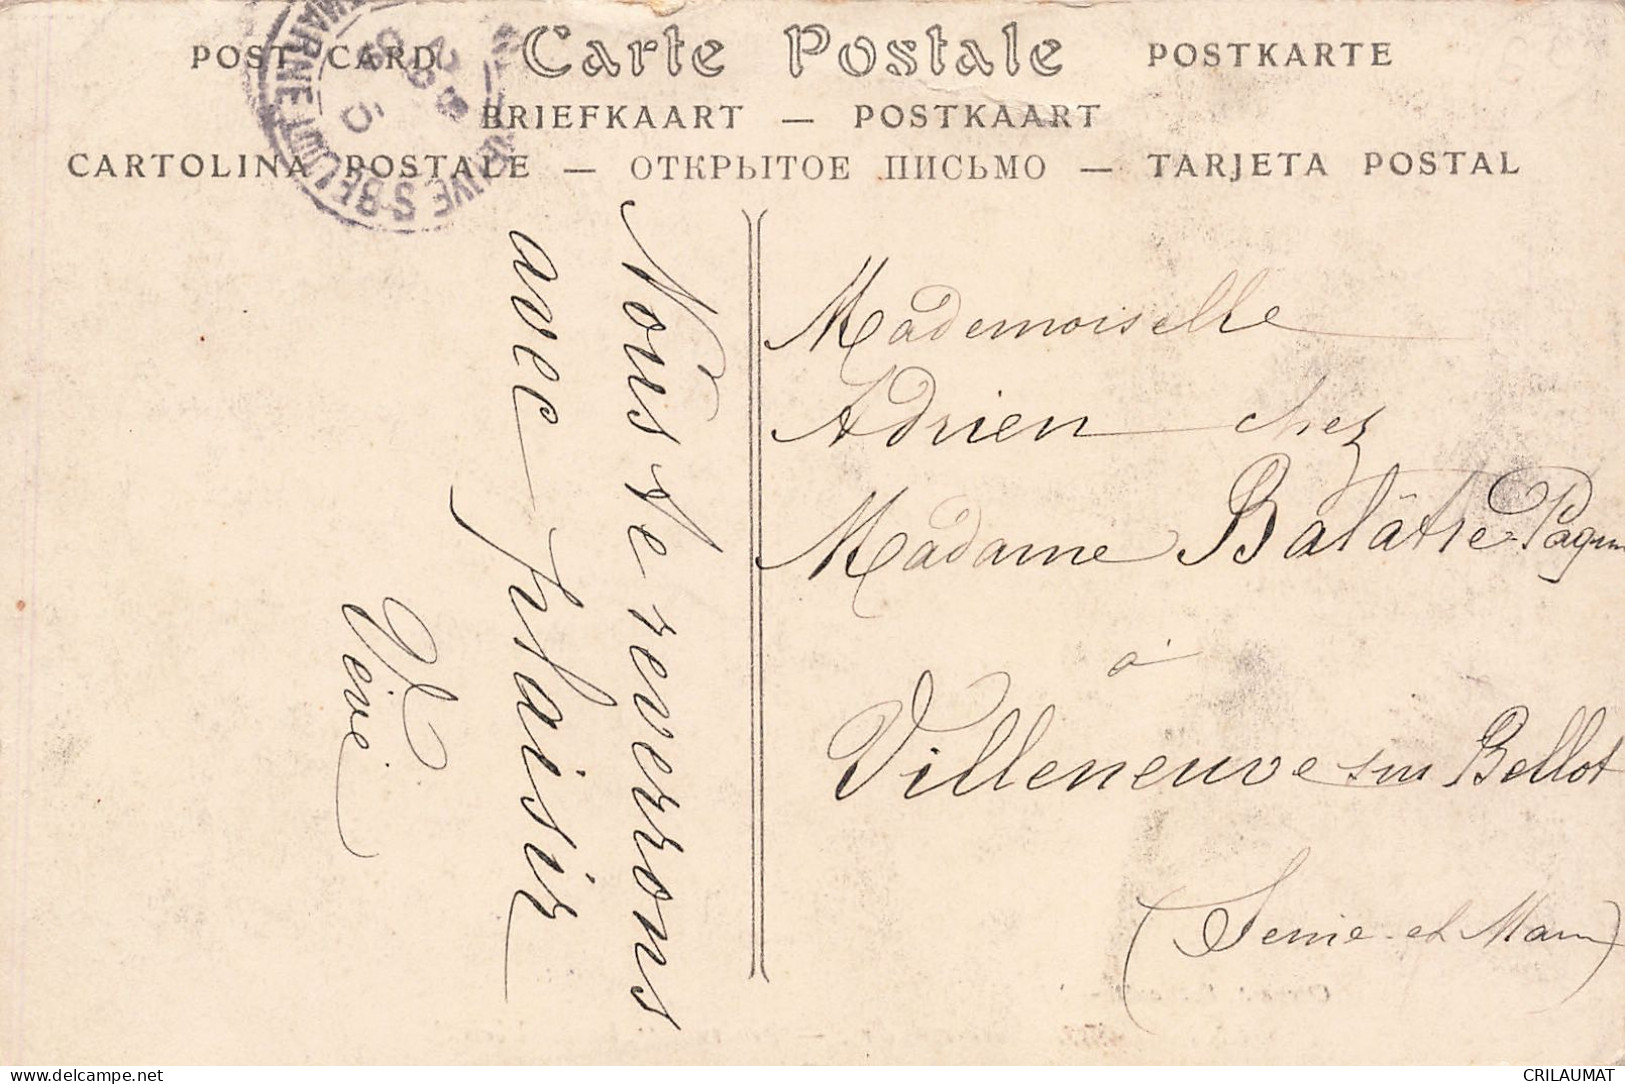 POST CARD Carte Postale POSTKARTE
BRIEFKAART — POSTKAART
CARTOLINA POSTALE — ОТКРЫТОЕ ПИСЬМО — TARJETA POSTAL
Nous te reverrons
avec plaisir
Mademoiselle
Adrien chez
Madame Balâtre-
à
Villeneuve sur Bellot
(Seine-et-Marne)
delcampe.net
CRILAUMAT